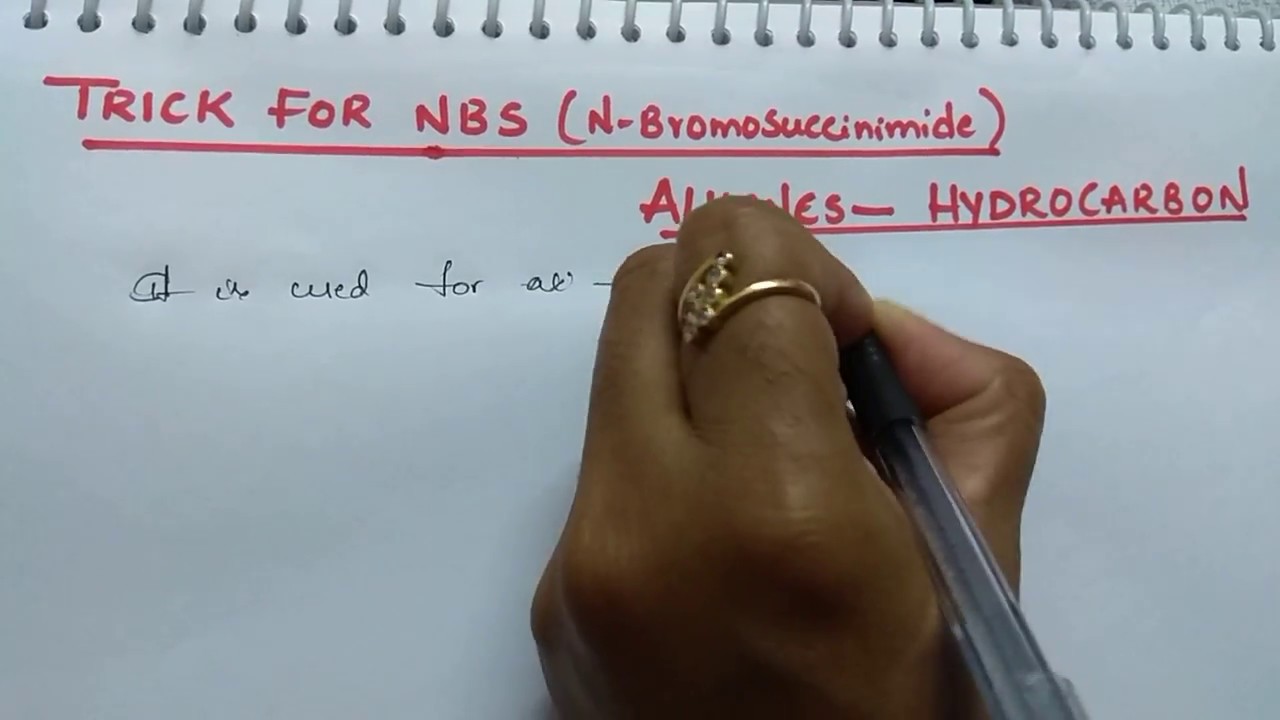 TRICK FOR NBS (N-Bromosuccinimide)
HYDROCARBON
It is used for